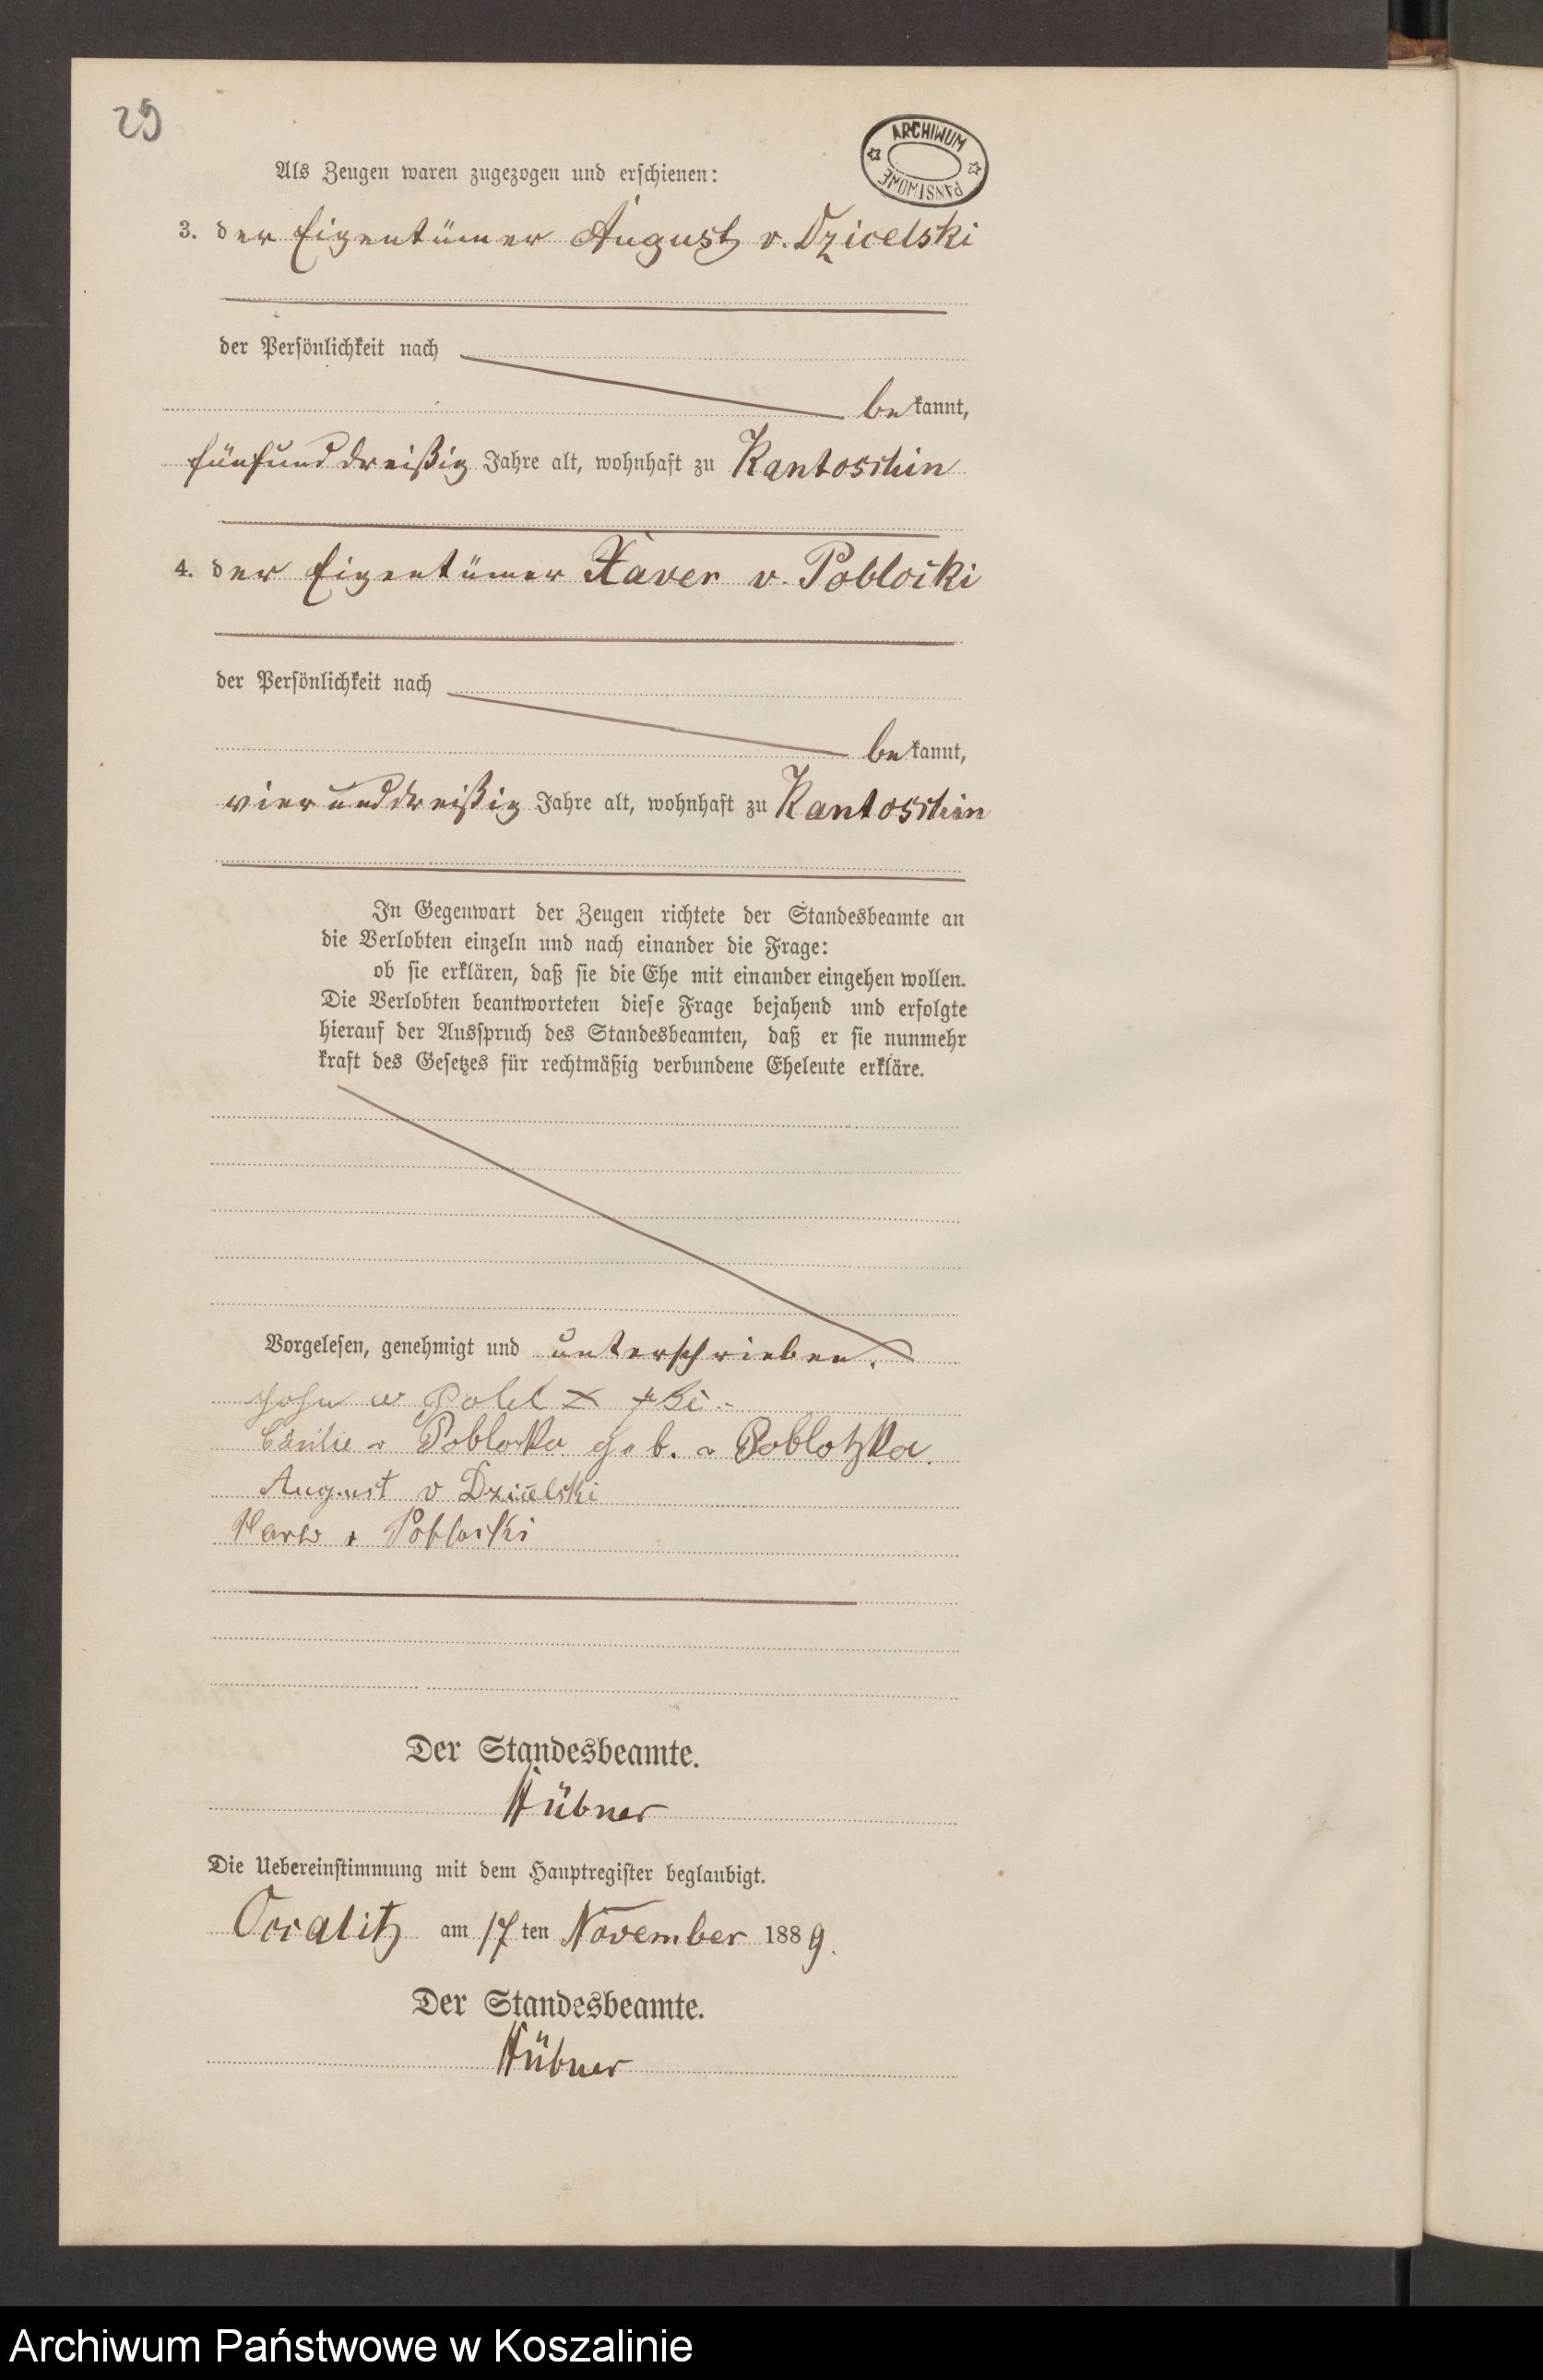 29
ARCHIWUM PAŃSTWOWE
Als Zeugen waren zugezogen und erschienen:
3. der Eigentümer August v. Dzicelski
der Persönlichkeit nach
bekannt,
fünfunddreißig Jahre alt, wohnhaft zu Kantoschin
4. der Eigentümer Xaver v. Poblocki
der Persönlichkeit nach
bekannt,
vierunddreißig Jahre alt, wohnhaft zu Kantoschin
In Gegenwart der Zeugen richtete der Standesbeamte an
die Verlobten einzeln und nach einander die Frage:
ob sie erklären, daß sie die Ehe mit einander eingehen wollen.
Die Verlobten beantworteten diese Frage bejahend und erfolgte
hierauf der Ausspruch des Standesbeamten, daß er sie nunmehr
kraft des Gesetzes für rechtmäßig verbundene Eheleute erkläre.
Vorgelesen, genehmigt und unterschrieben.
Cäcilie v Poblocka geb. v Poblotzka.
August v Dzicelski
v Poblocki
Der Standesbeamte.
Hübner
Die Uebereinstimmung mit dem Hauptregister beglaubigt.
Occalitz am 17ten November 1889.
Der Standesbeamte.
Hübner
Archiwum Państwowe w Koszalinie